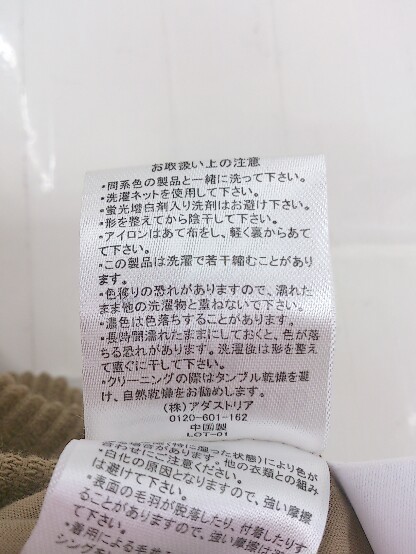 お取扱い上の注意
・同系色の製品と一緒に洗って下さい。
・洗濯ネットを使用して下さい。
・蛍光増白剤入り洗剤はお避け下さい。
・形を整えてから陰干して下さい。
・アイロンはあて布をし、軽く裏からあて
て下さい。
・この製品は洗濯で若干縮むことがあり
ます。
・色移りの恐れがありますので、濡れた
まま他の洗濯物と重ねないで下さい。
・濃色は色落ちすることがあります。
・長時間濡れたままにしておくと、色が落
ちる恐れがあります。洗濯後は形を整え
て直ぐに干して下さい。
・クリーニングの際はタンブル乾燥を避
け、自然乾燥をお勧めします。
(株)アダストリア
0120-601-162
中国製
LOT-01
(特に湿った状態)により色が
場合があります。他の衣類との組み
合わせにご注意ください。
・白化の原因となりますので、強い摩擦
は避けて下さい。
・表面の毛羽が脱落したり、付着したりす
ることがありますので、強い摩擦